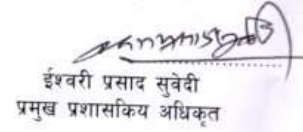 ईश्वरी प्रसाद सुवेदी
प्रमुख प्रशासकिय अधिकृत